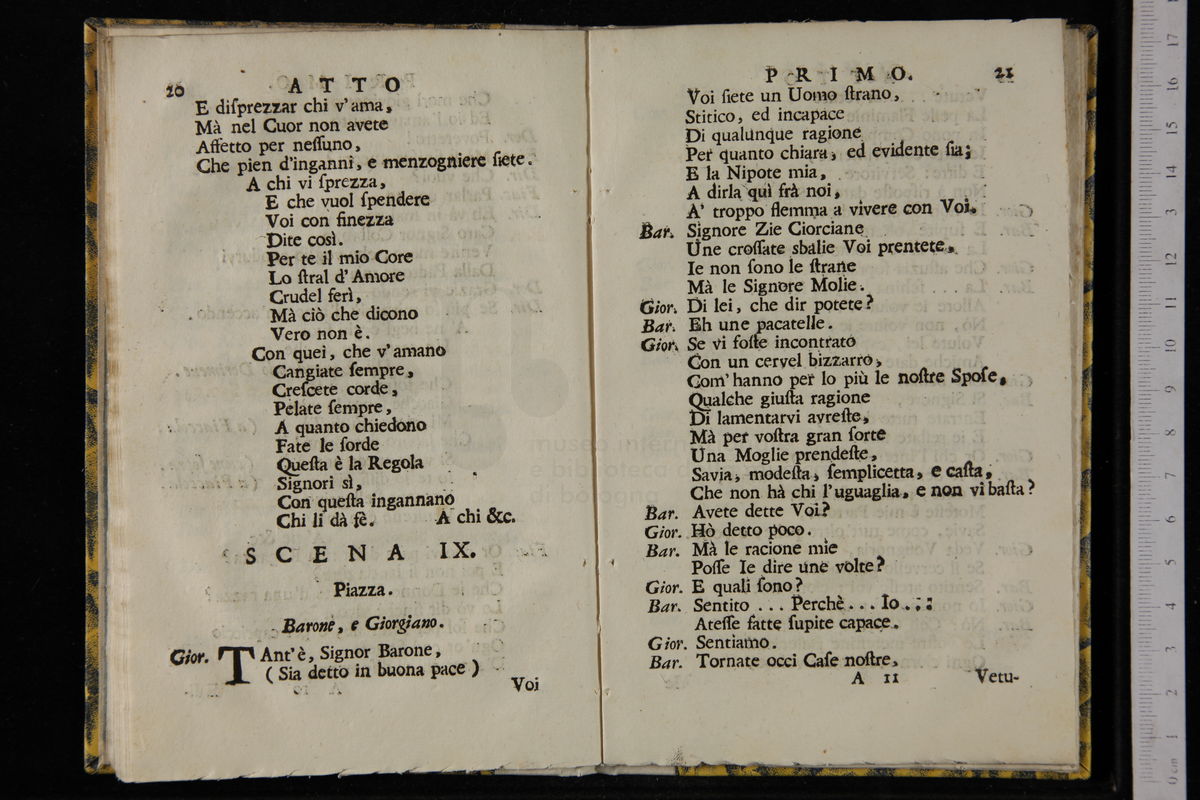 20 ATTO
E diſprezzar chi v'ama,
Mà nel Cuor non avete
Affetto per neſſuno,
Che pien d'inganni, e menzogniere ſiete.
A chi vi ſprezza,
E che vuol ſpendere
Voi con finezza
Dite così.
Per te il mio Core
Lo ſtral d'Amore
Crudel ferì,
Mà ciò che dicono
Vero non è.
Con quei, che v'amano
Cangiate ſempre,
Creſcete corde,
Pelate ſempre,
A quanto chiedono
Fate le ſorde
Queſta è la Regola
Signori sì,
Con queſta ingannano
Chi li dà fè. A chi &c.
SCENA IX.
Piazza.
Barone, e Giorgiano.
Gior. TAnt'è, Signor Barone,
( Sia detto in buona pace )
Voi
PRIMO. 21
Voi ſiete un Uomo ſtrano,
Stitico, ed incapace
Di qualunque ragione
Per quanto chiara, ed evidente ſia;
E la Nipote mia,
A dirla quì frà noi,
A' troppo flemma a vivere con Voi.
Bar. Signore Zie Ciorciane
Une croſſate sbalie Voi prentete,
Ie non ſono le ſtrane
Mà le Signore Molie.
Gior. Di lei, che dir potete?
Bar. Eh une pacatelle.
Gior. Se vi foſte incontrato
Con un cervel bizzarro,
Com'hanno per lo più le noſtre Spoſe,
Qualche giuſta ragione
Di lamentarvi avreſte,
Mà per voſtra gran ſorte
Una Moglie prendeſte,
Savia, modeſta, ſemplicetta, e caſta,
Che non hà chi l'uguaglia, e non vi baſta?
Bar. Avete dette Voi?
Gior. Hò detto poco.
Bar. Mà le racione mie
Poſſe Ie dire une volte?
Gior. E quali ſono?
Bar. Sentito ... Perchè ... Io ...
Ateſſe fatte ſupite capace.
Gior. Sentiamo.
Bar. Tornate occi Caſe noſtre,
A 11 Vetu-